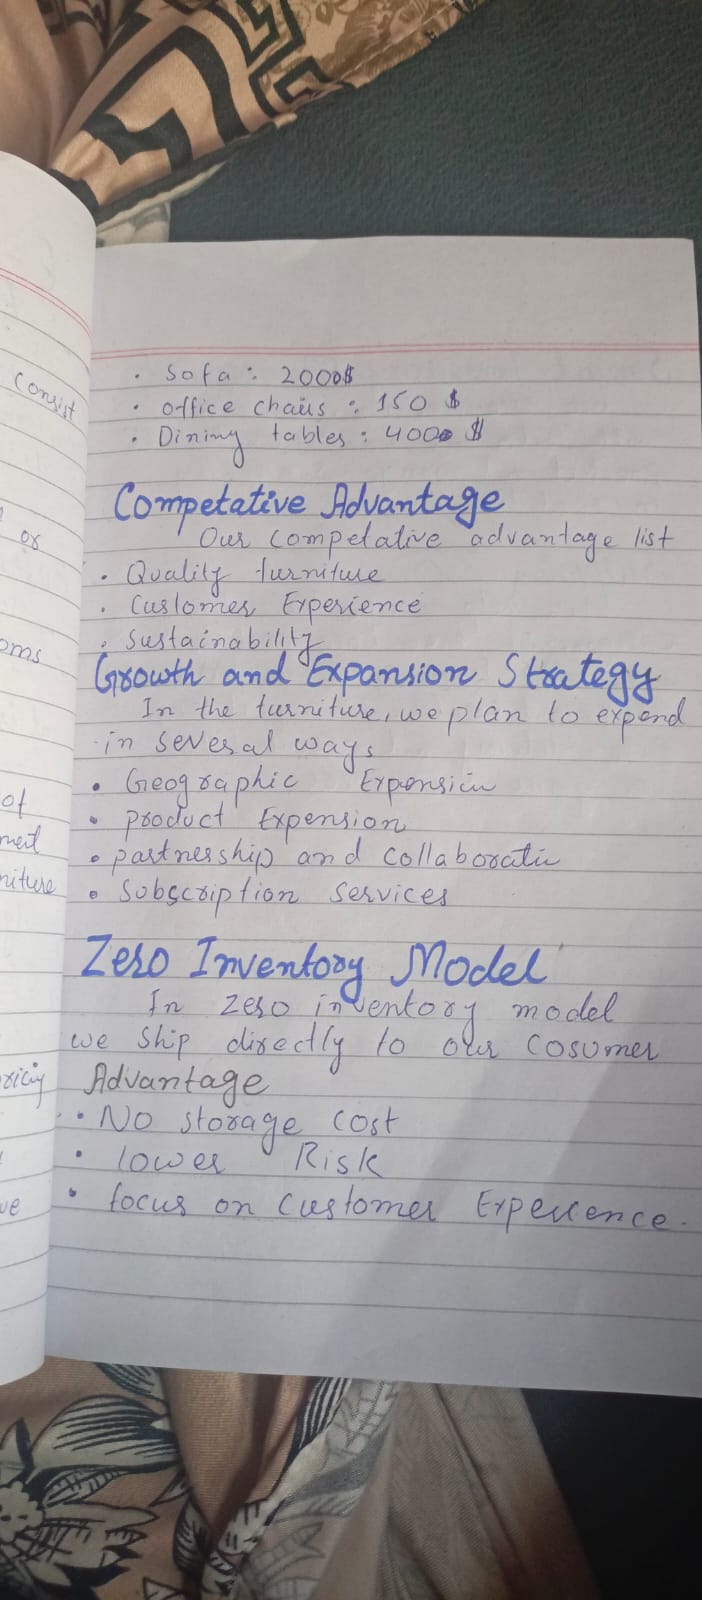 consist
or
oms
of
ment
niture
ricing
ve
• Sofa : 2000$
• office chairs : 150 $
• Dining tables : 4000 $
Competative Advantage
Our competative advantage list
• Quality furniture
• Customer Experience
• Sustainability
Growth and Expansion Strategy
In the furniture, we plan to expend
in several ways
• Geographic Expension
• product Expension
• partnership and collaboratin
• Subscription services
Zero Inventory Model
In zero inventory model
we ship directly to our cosumer
Advantage
• No storage cost
• lower Risk
• focus on customer Experience.